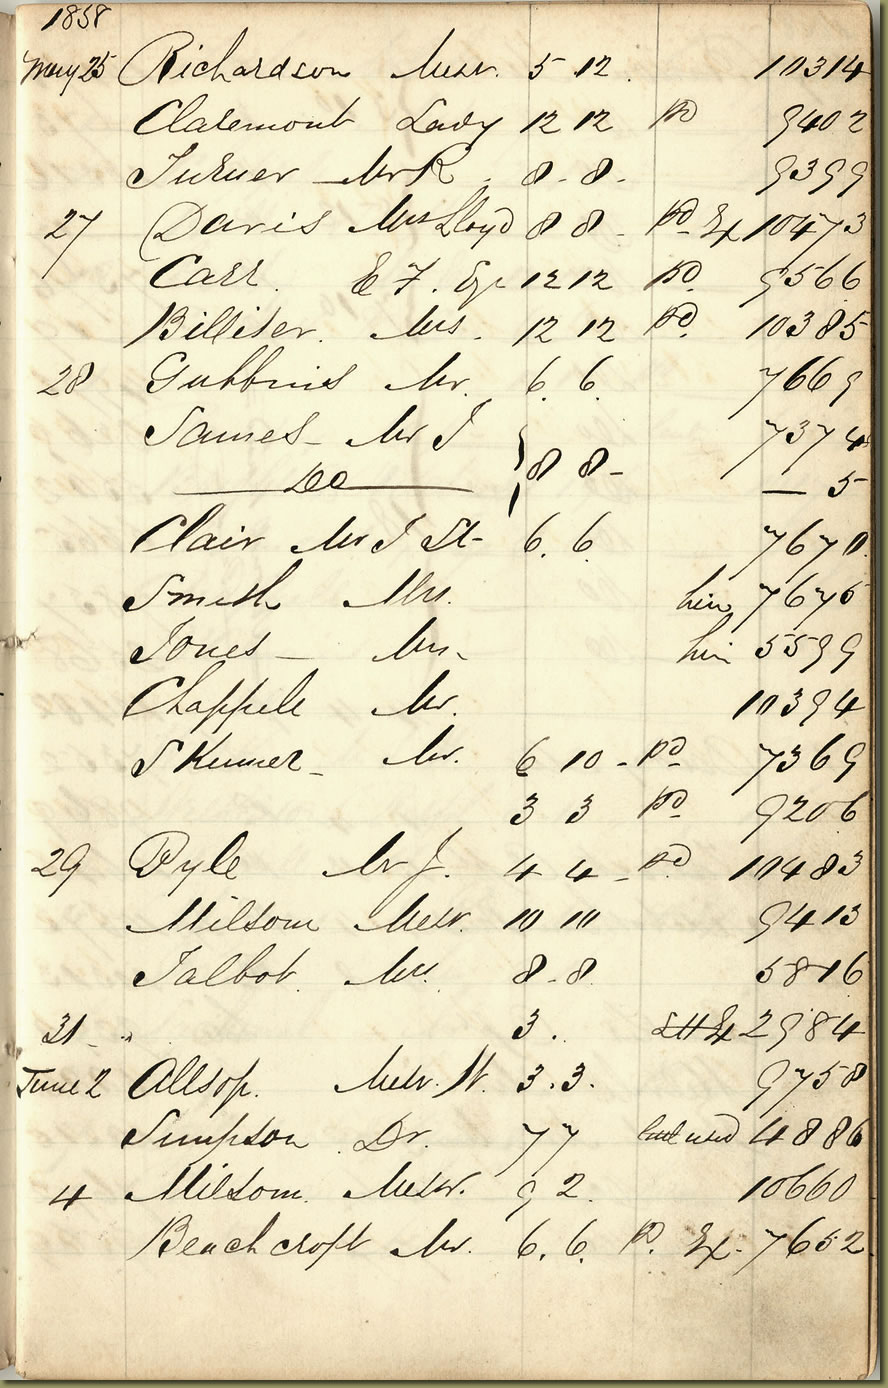 1858
May 25 Richardson Messr. 5 12. 10314
Claremont Lady 12 12 pd 9402
Turner - Mr R. 8 - 8 - 9399
27 Davis Mrs Lloyd 8 8 - pd Ex 10473
Carr. E F. Esqr 12 12 pd. 9566
Billiter. Mrs. 12 12 pd. 10385
28 Gubbins Mr. 6. 6. 7669
James - Mr J 7374
Do } 8 8 - — 5
Clair Mr J St - 6. 6. 7670
Smith Mrs. hire 7675
Jones — Mrs - hire 5599
Chappell Mr. 10394
Skinner - Mr. 6 10 - pd 7369
3 3 pd. 9206
29 Pyle Mr J. 4 4 - pd 10483
Milsom Messr. 10 10 9413
Talbot. Mrs. 8 - 8. 5816
31 - " 3. 2984
June 2 Allsop. Messr. W. 3. 3. 9758
Simpson Dr. 7 7 4886
4 Milsom. Messr. 9 2. 10660
Beachcroft Mr. 6. 6. pd. Ex - 7652